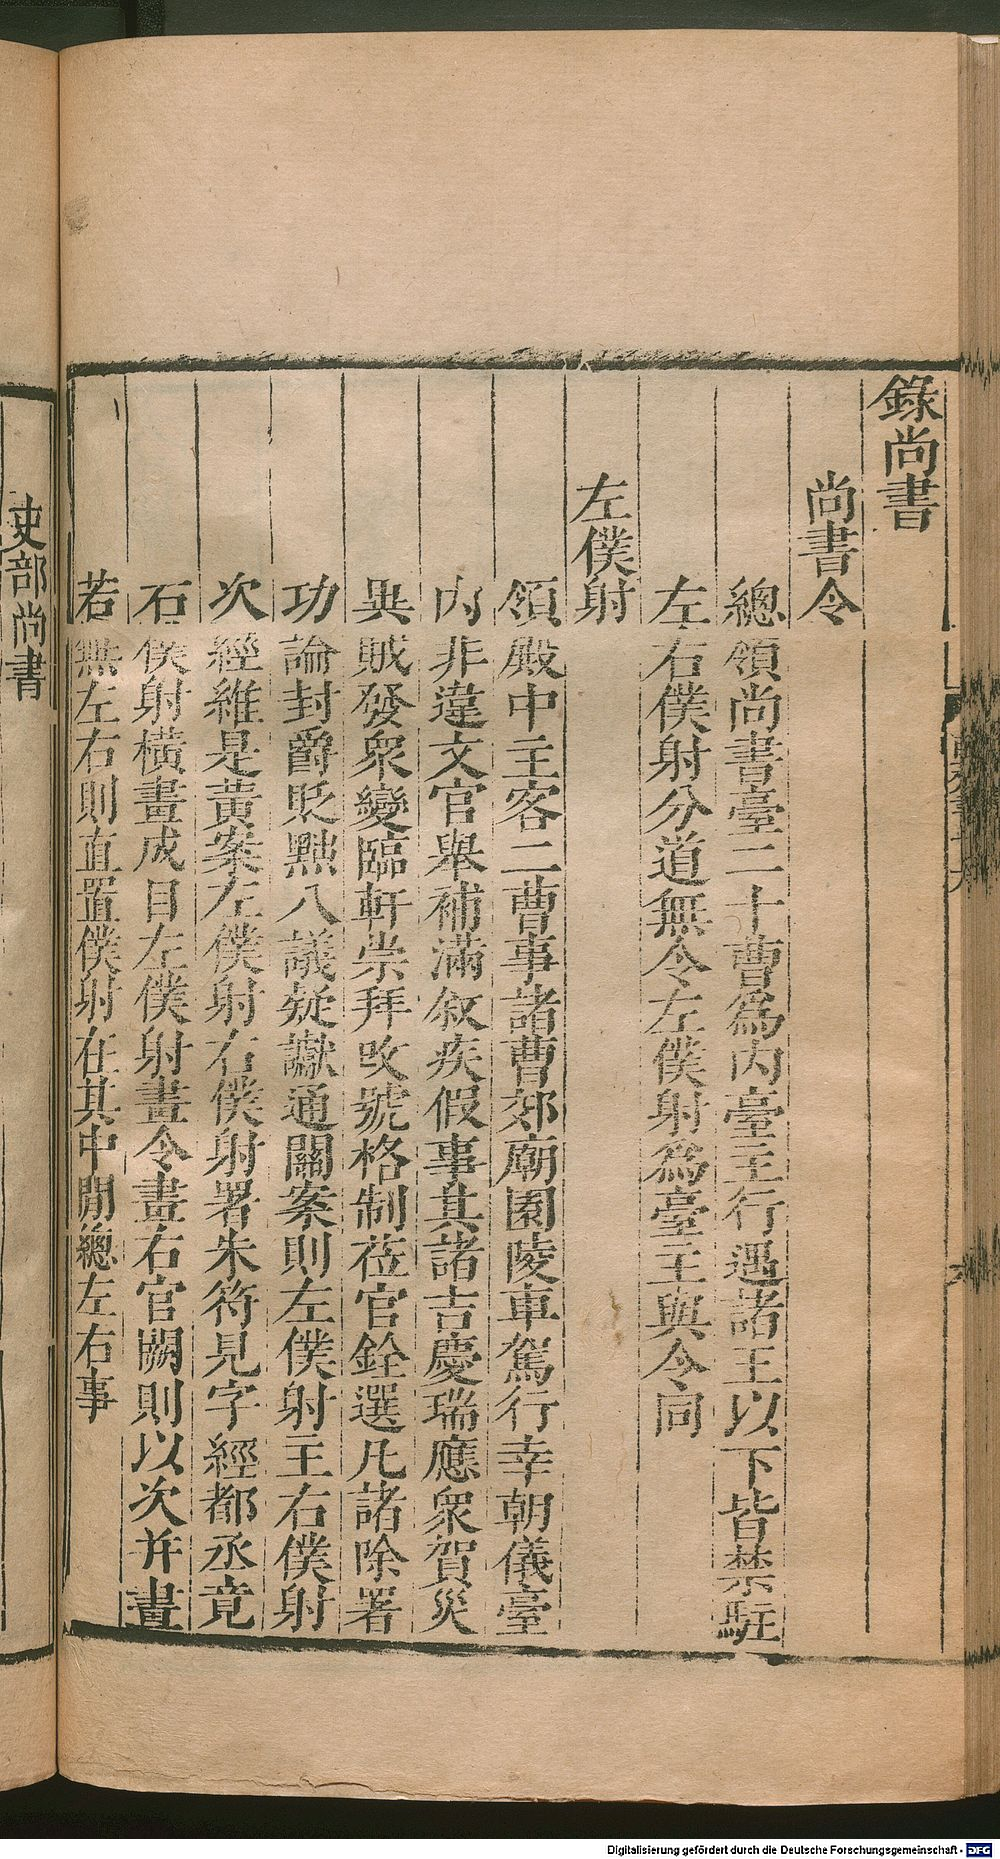 錄尚書
尚書令
總領尚書臺二十曹爲內臺主行遇諸王以下皆禁駐
左右僕射分道無令左僕射爲臺主與令同
左僕射
領殿中主客二曹事諸曹郊廟園陵車駕行幸朝儀臺
內非違文官舉補滿敘疾假事其諸吉慶瑞應衆賀災
異賊發衆變臨軒崇拜改號格制莅官銓選凡諸除署
功論封爵貶黜八議疑讞通關案則左僕射主右僕射
次經維是黃案左僕射右僕射署朱符見字經都丞竟
右僕射橫畫成目左僕射畫令畫右官闕則以次并畫
若無左右則直置僕射在其中閒總左右事
吏部尚書
Digitalisierung gefördert durch die Deutsche Forschungsgemeinschaft - DFG